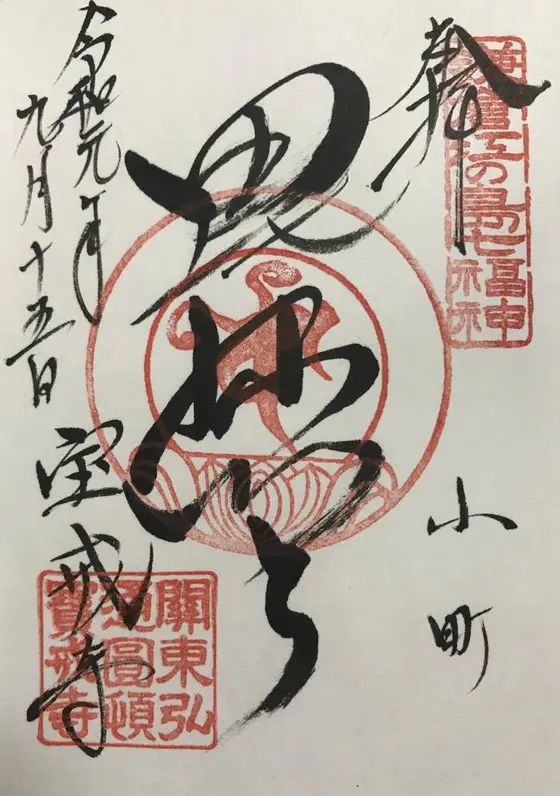 奉拝
鎌倉江の島七福神
小町
毘沙門天
令和元年
九月十五日
宝戒寺
關東弘
通圓頓
寶戒寺